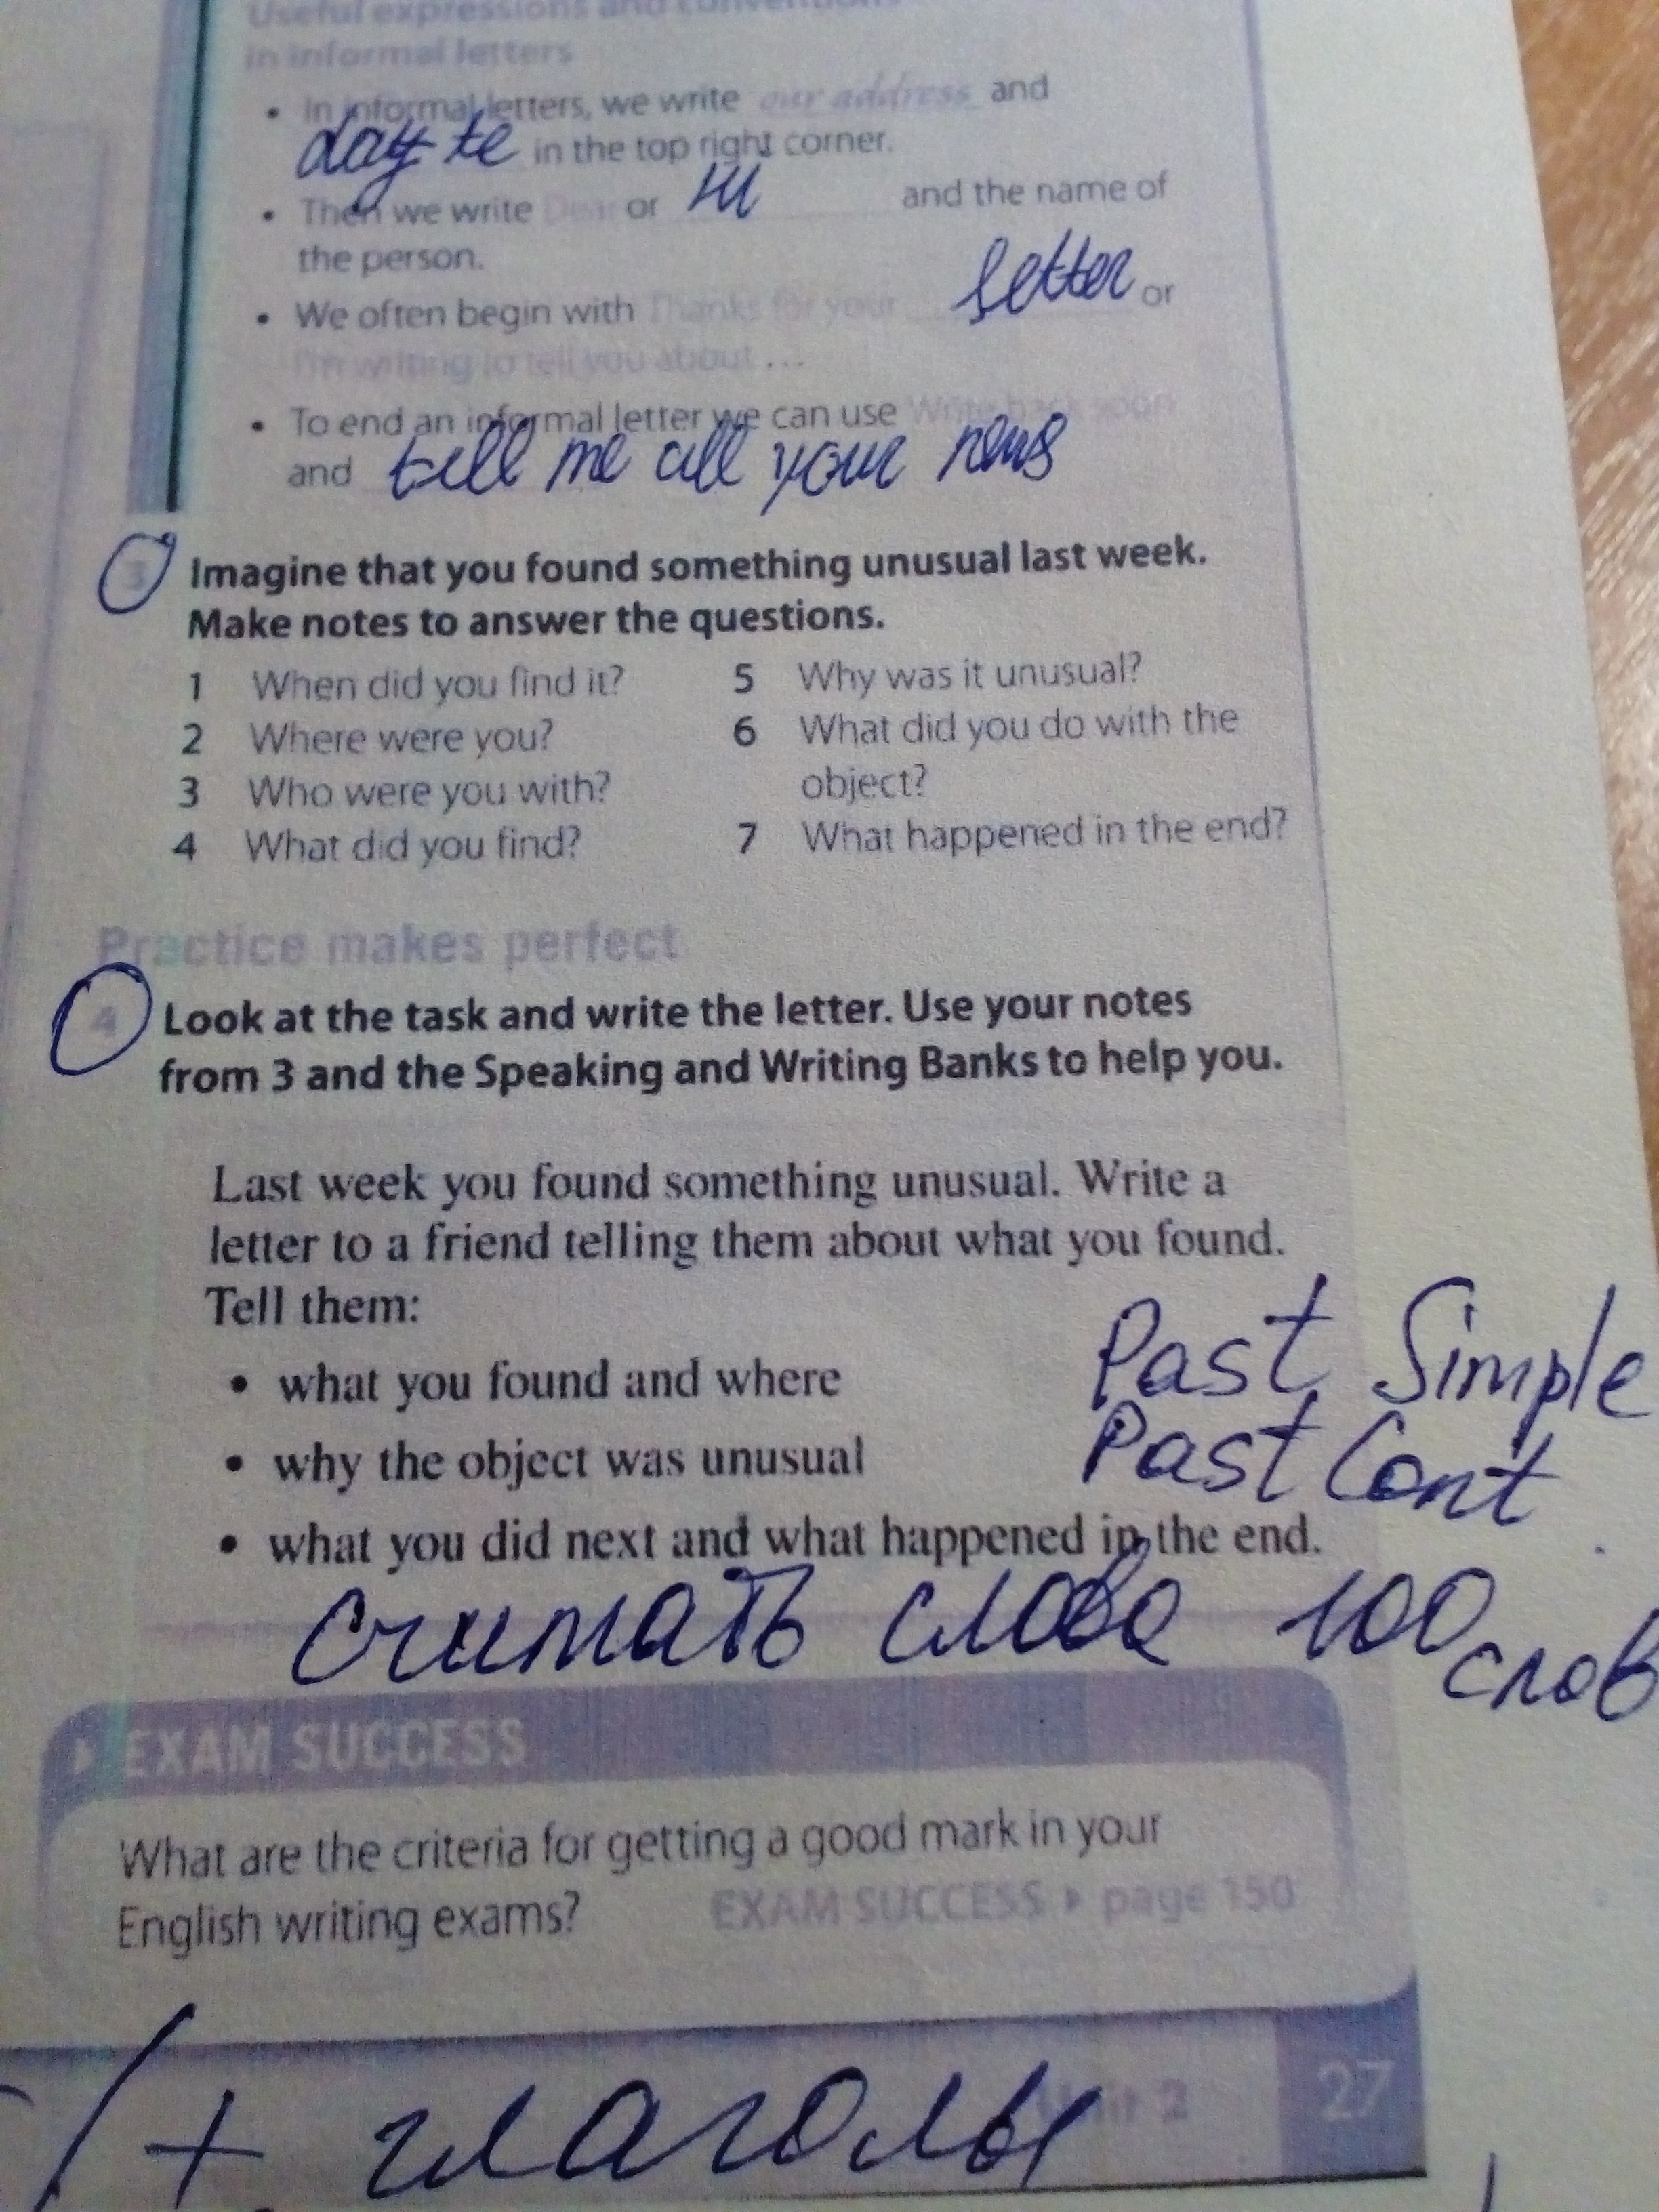 Useful expressions and conventions
in informal letters
• In informal letters, we write our address and
day te in the top right corner.
• Then we write Dear or Hi and the name of
the person.
• We often begin with Thanks for your letter or
I'm writing to tell you about ...
• To end an informal letter we can use Write back soon
and tell me all your news
3 Imagine that you found something unusual last week.
Make notes to answer the questions.
1 When did you find it?
2 Where were you?
3 Who were you with?
4 What did you find?
5 Why was it unusual?
6 What did you do with the
object?
7 What happened in the end?
Practice makes perfect
4 Look at the task and write the letter. Use your notes
from 3 and the Speaking and Writing Banks to help you.
Last week you found something unusual. Write a
letter to a friend telling them about what you found.
Tell them:
• what you found and where
• why the object was unusual
• what you did next and what happened in the end.
Past Simple
Past Cont.
считать слова 100
слов
EXAM SUCCESS
What are the criteria for getting a good mark in your
English writing exams? EXAM SUCCESS ▸ page 150
Unit 2 27
+ глаголы